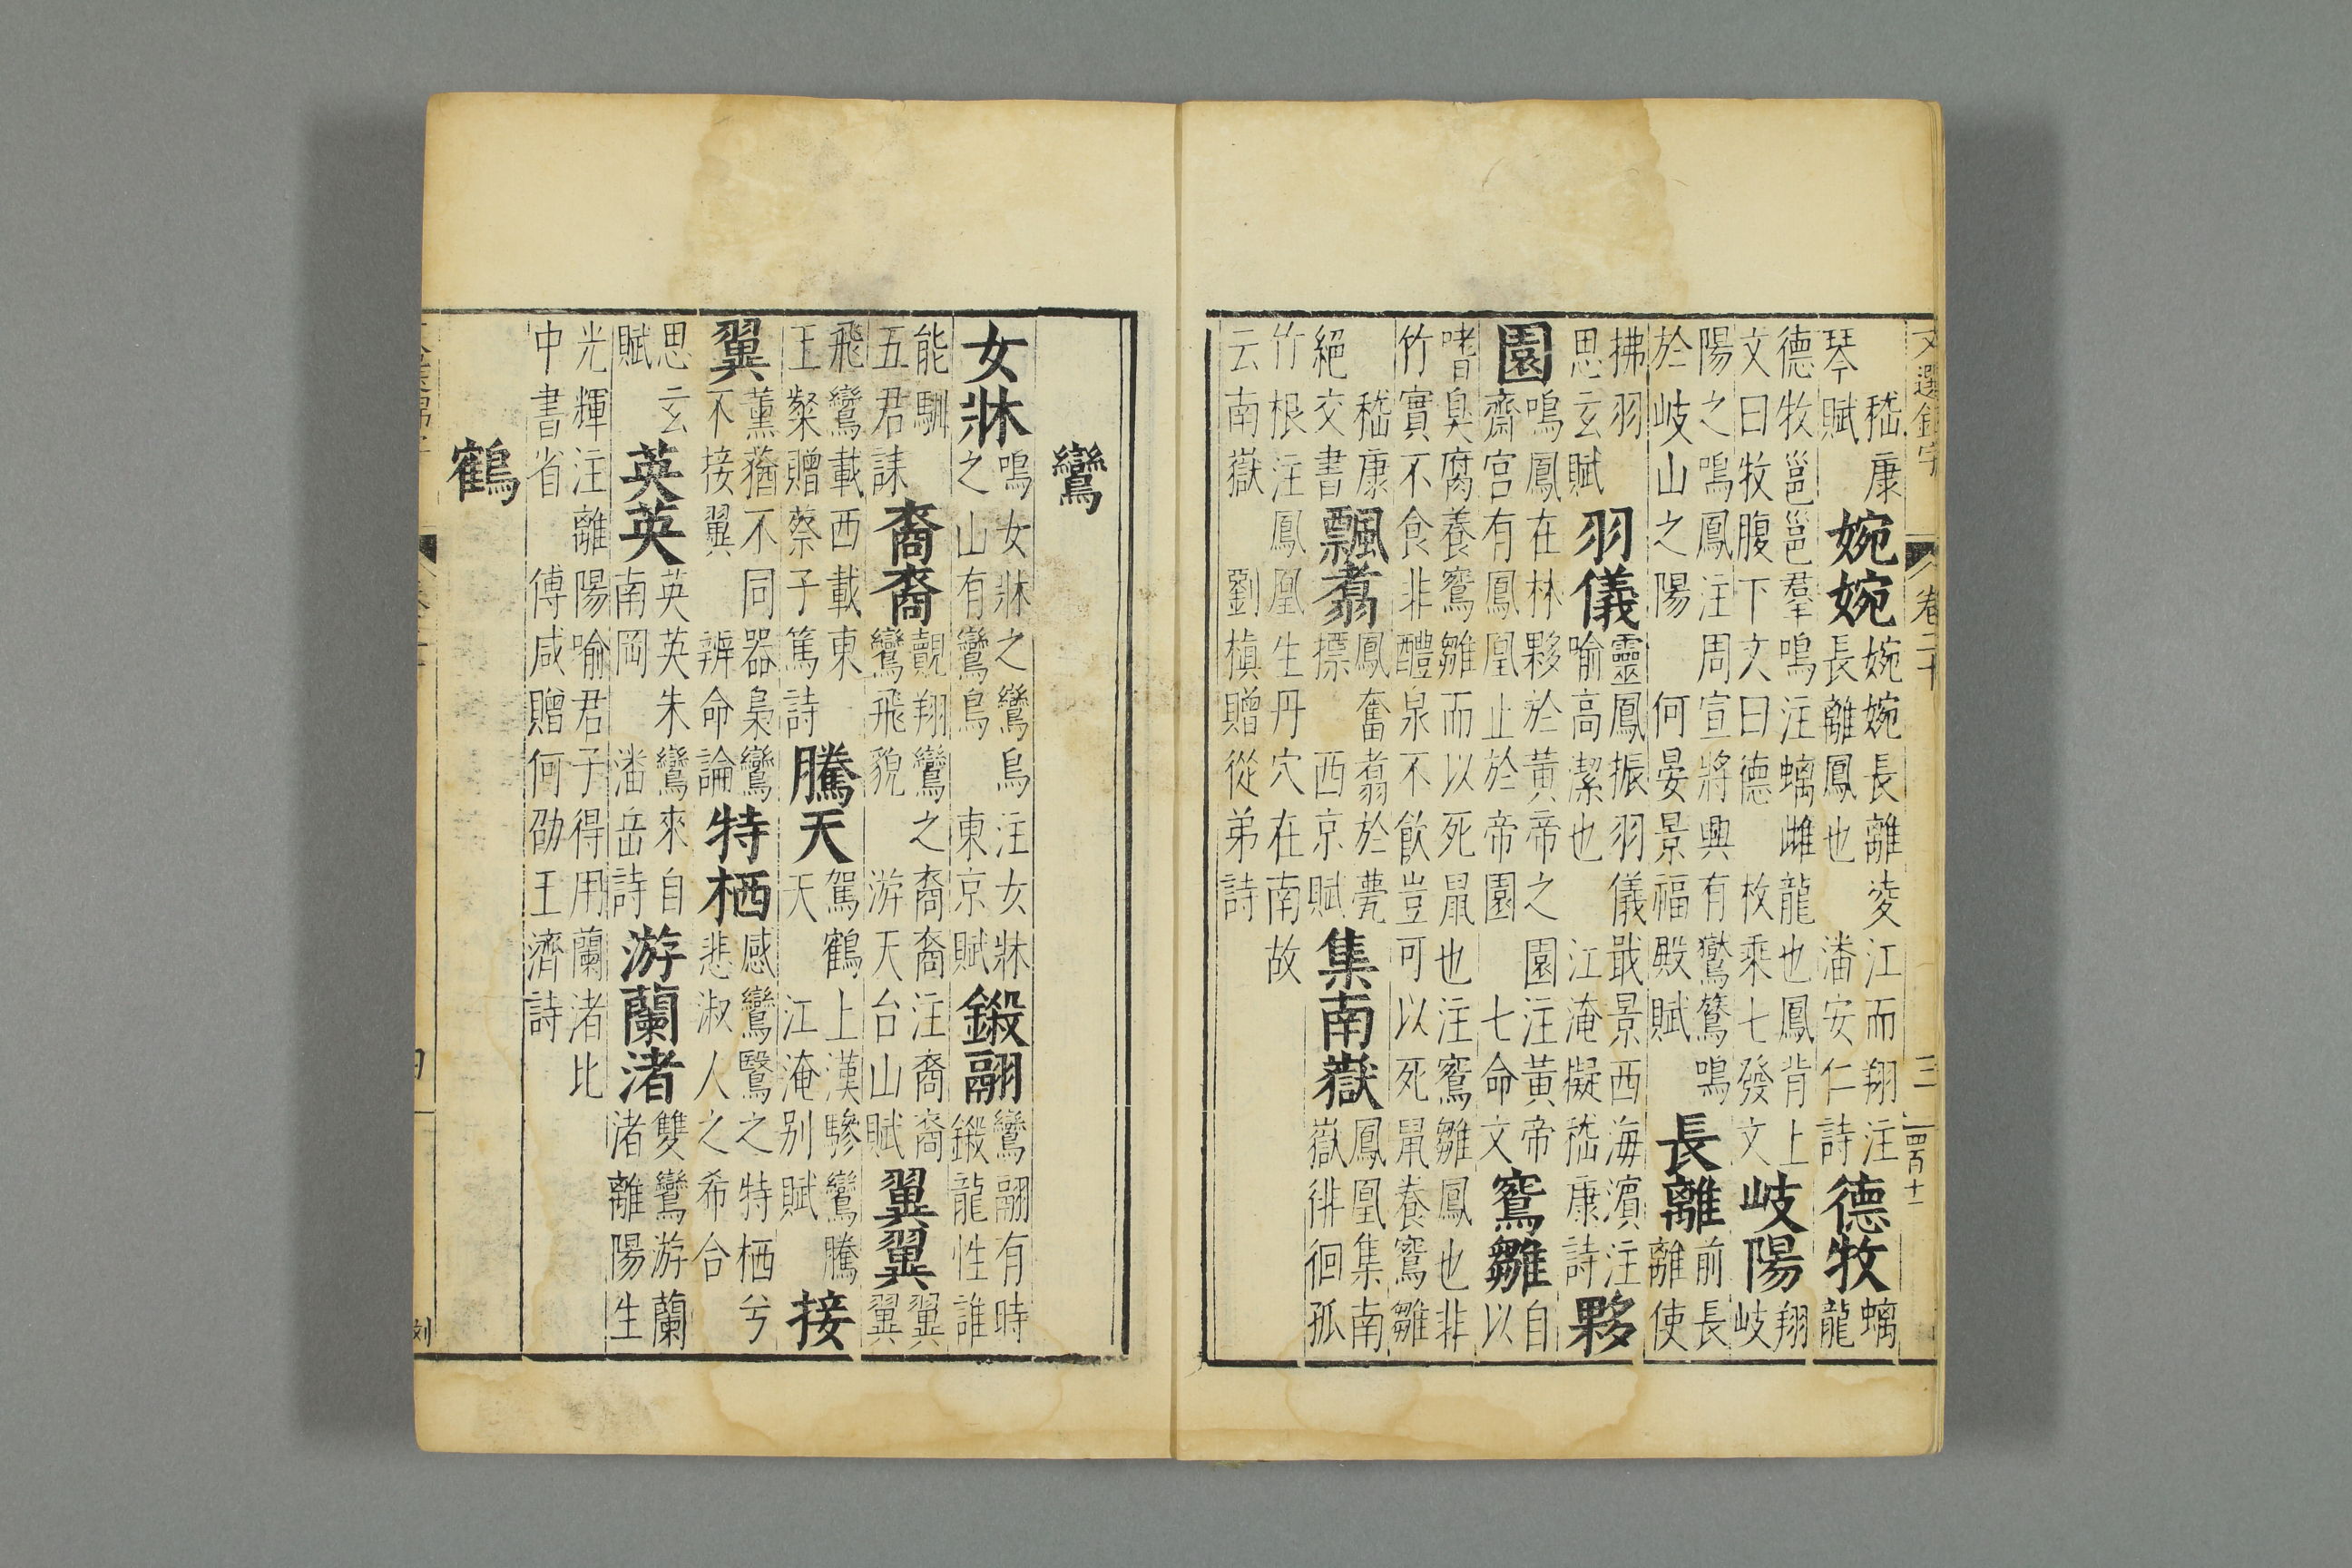 文選錦字　卷二十　三　四百十一
嵇康
琴賦
婉婉
婉婉長離凌江而翔注
長離鳳也　潘安仁詩
德牧
螭
龍
德牧邕邕羣鳴注螭雌龍也鳳背上
文曰牧腹下文曰德　枚乘七發文
岐陽
翔
岐
陽之鳴鳳注周宣將興有鸑鷟鳴
於岐山之陽　何晏景福殿賦
長離
前長
離使
拂羽
思玄賦
羽儀
靈鳳振羽儀戢景西海濱注
喻高潔也　江淹擬嵇康詩
夥
園
鳴鳳在林夥於黃帝之園注黃帝
齋宮有鳳凰止於帝園　七命文
鵷雛
自
以
嗜臭腐養鵷雛而以死鼠也注鵷雛鳳也非
竹實不食非醴泉不飲豈可以死鼠養鵷雛
嵇康
絕交書
飄翥
鳳奮翥於甍
摽　西京賦
集南嶽
鳳凰集南
嶽徘徊孤
竹根注鳳凰生丹穴在南故
云南嶽　劉楨贈從弟詩
鸞
女牀
鳴女牀之鸞鳥注女牀
之山有鸞鳥　東京賦
鎩翮
鸞翮有時
鎩龍性誰
能馴
五君詠
裔裔
覿翔鸞之裔裔注裔裔
鸞飛貌　游天台山賦
翼翼
翼
翼
飛鸞載西載東
王粲贈蔡子篤詩
騰天
駕鶴上漢驂鸞騰
天　江淹别賦
接
翼
薰蕕不同器梟鸞
不接翼　辨命論
特栖
感鸞鷖之特栖兮
悲淑人之希合
思玄
賦
英英
英英朱鸞來自
南岡　潘岳詩
游蘭渚
雙鸞游蘭
渚離陽生
光輝注離陽喻君子得用蘭渚比
中書省　傅咸贈何劭王濟詩
鶴